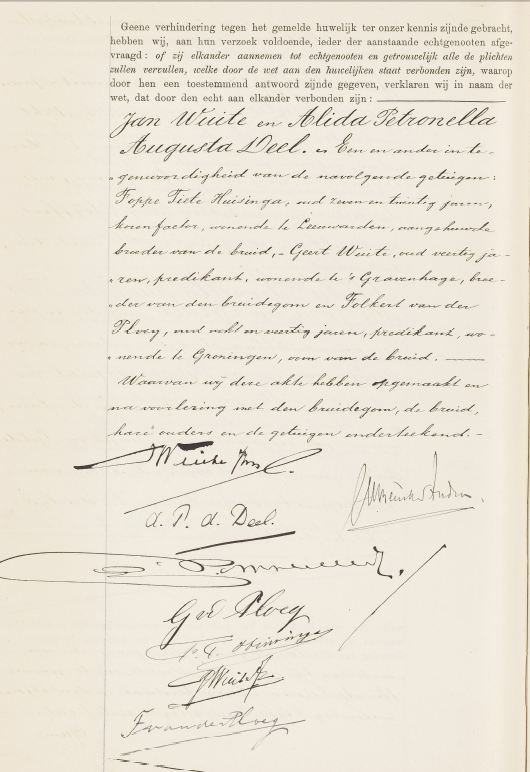 Geene verhindering tegen het gemelde huwelijk ter onzer kennis zijnde gebracht,
hebben wij, aan hun verzoek voldoende, ieder der aanstaande echtgenooten afge-
vraagd: of zij elkander aannemen tot echtgenooten en getrouwelijk alle de plichten
zullen vervullen, welke door de wet aan den huwelijken staat verbonden zijn, waarop
door hen een toestemmend antwoord zijnde gegeven, verklaren wij in naam der
wet, dat door den echt aan elkander verbonden zijn:
Jan Wuite en Alida Petronella
Augusta Deel. Een en ander in te-
genwoordigheid van de navolgende getuigen:
Foppe Tiete Huisinga, oud zeven en twintig jaren,
korenfactor, wonende te Leeuwarden, aangehuwde
broeder van de bruid, Geert Wuite, oud veertig ja-
ren, predikant, wonende te 's Gravenhage, broe-
der van den bruidegom en Folkert van der
Ploeg, oud acht en veertig jaren, predikant, wo-
nende te Groningen, oom van de bruid.
Waarvan wij deze akte hebben opgemaakt en
na voorlezing met den bruidegom, de bruid,
hare ouders en de getuigen onderteekend.
JWuite
A. P. A. Deel.
G vd Ploeg
GWuite
F van der Ploeg